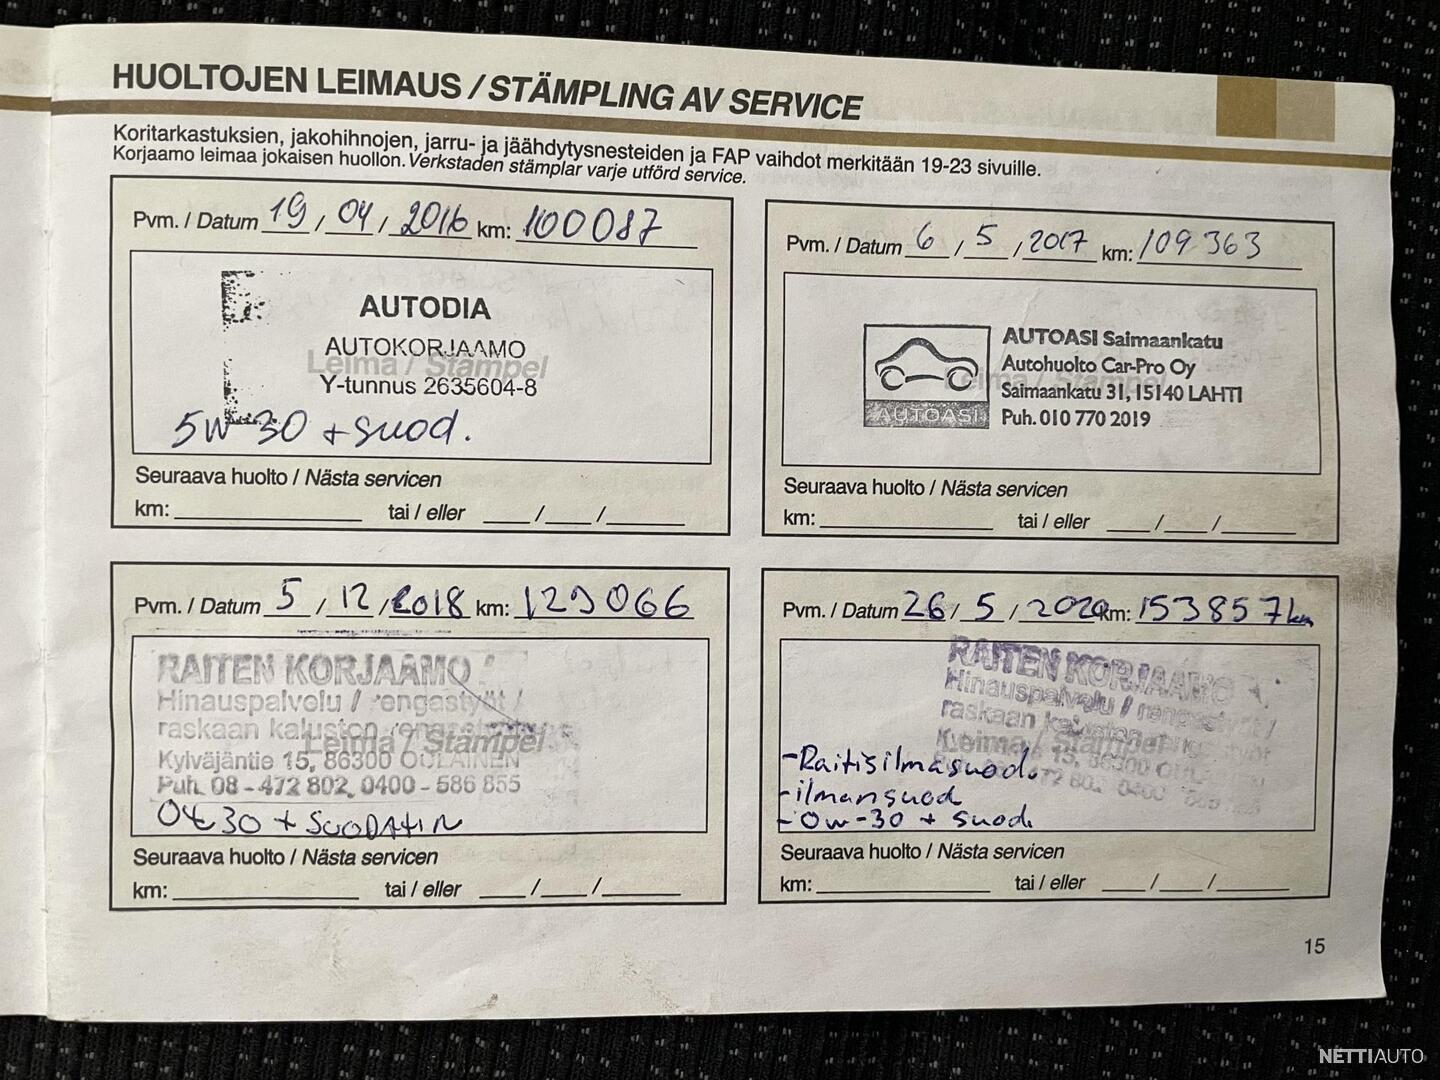 HUOLTOJEN LEIMAUS / STÄMPLING AV SERVICE
Koritarkastuksien, jakohihnojen, jarru- ja jäähdytysnesteiden ja FAP vaihdot merkitään 19-23 sivuille.
Korjaamo leimaa jokaisen huollon. Verkstaden stämplar varje utförd service.
Pvm. / Datum 19 / 04 / 2016 km: 100087
AUTODIA
AUTOKORJAAMO
Leima / Stämpel
Y-tunnus 2635604-8
5W-30 + suod.
Seuraava huolto / Nästa servicen
km: tai / eller / /
Pvm. / Datum 6 / 5 / 2017 km: 109 363
AUTOASI Saimaankatu
Autohuolto Car-Pro Oy
Leima / Stämpel
Saimaankatu 31, 15140 LAHTI
AUTOASI
Puh. 010 770 2019
Seuraava huolto / Nästa servicen
km: tai / eller / /
Pvm. / Datum 5 / 12 / 2018 km: 129066
RAITEN KORJAAMO
Hinauspalvelu / rengastyöt /
raskaan kaluston
Leima / Stämpel
Kylväjäntie 15, 86300 OULAINEN
Puh. 08 - 472 802, 0400 - 586 855
30 + SUODATIN
Seuraava huolto / Nästa servicen
km: tai / eller / /
Pvm. / Datum 26 / 5 / 2020 km: 153857 km
RAITEN KORJAAMO
Hinauspalvelu / rengastyöt /
raskaan
Leima / Stämpel
15, 86300 OULAINEN
472 802, 0400
-Raitisilmasuod.
-ilmansuod
-0w-30 + suod.
Seuraava huolto / Nästa servicen
km: tai / eller / /
15
NETTIAUTO